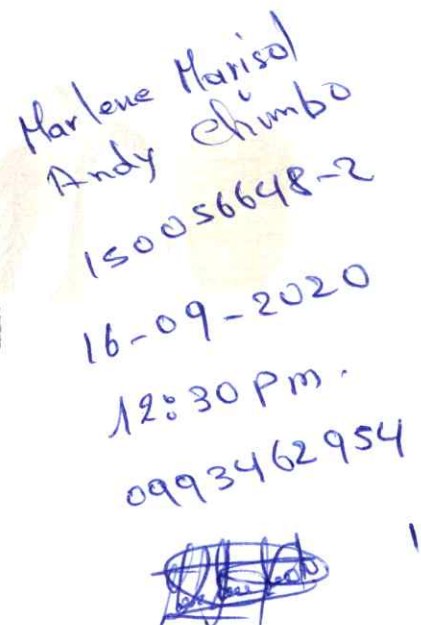 Marlene Marisol
Andy Chimbo
150056648-2
16-09-2020
12:30 pm.
0993462954